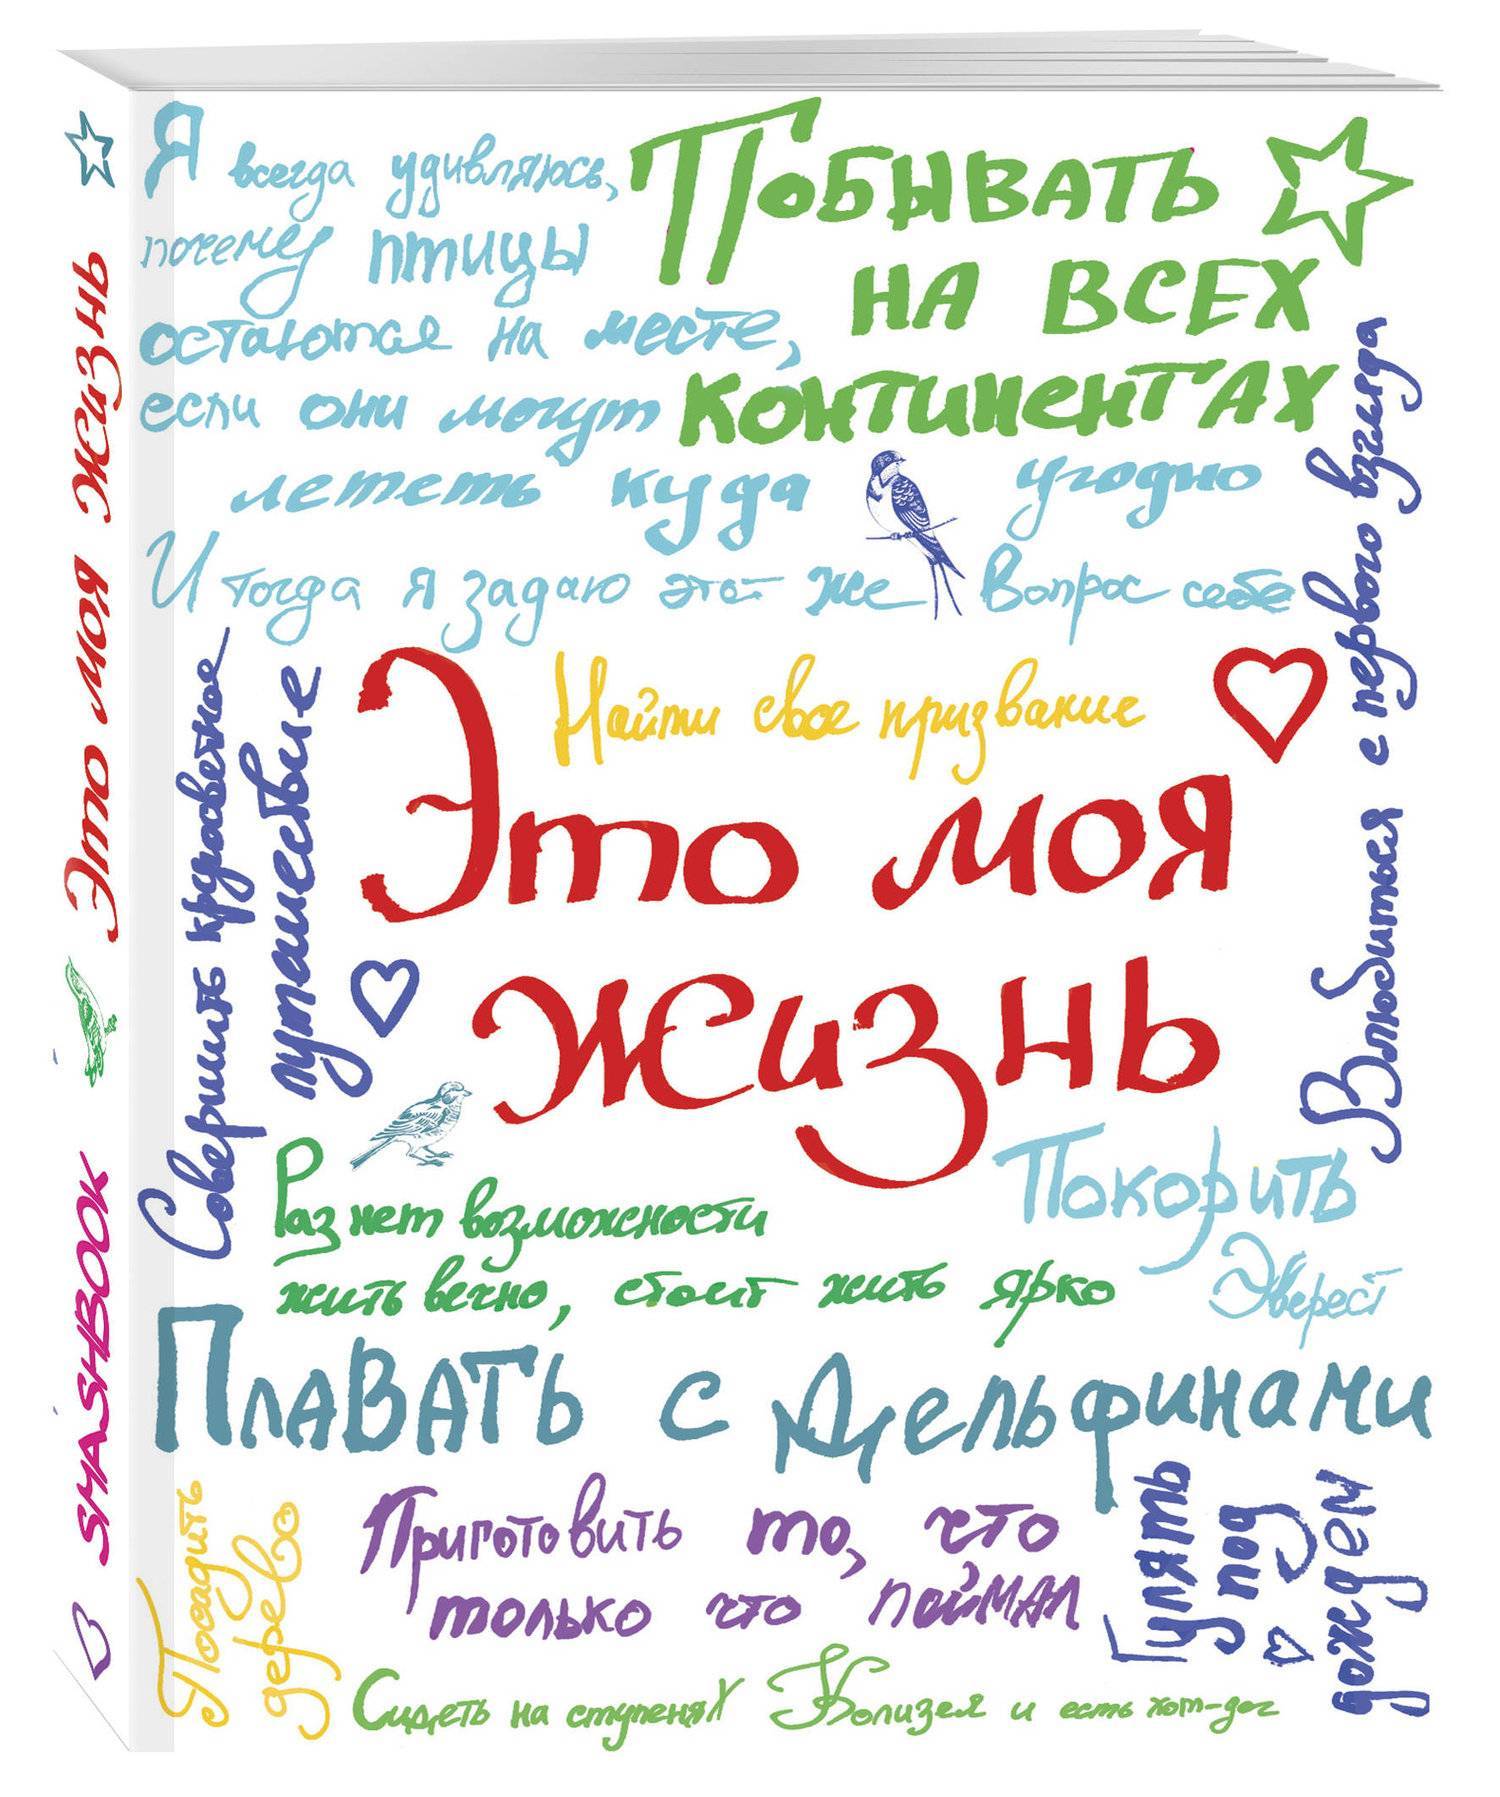 Я всегда удивляюсь,
почему птицы
остаются на месте,
если они могут
лететь куда угодно
И тогда я задаю этот же вопрос себе
Побывать
на всех
континентах
Влюбиться с первого взгляда
Найти свое призвание
Это моя
жизнь
Совершить кругосветное
путешествие
Раз нет возможности
жить вечно, стоит жить ярко
Покорить
Эверест
Плавать с дельфинами
Посадить
дерево
Приготовить то, что
только что поймал
Гулять
под
дождем
Сидеть на ступенях Колизея и есть хот-дог
Это моя жизнь
SMASHBOOK